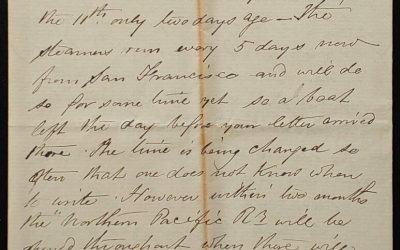 the 11th only two days ago – The
steamers run every 5 days now
from San Francisco and will do
so for some time yet so a boat
left the day before your letter arrived
there. The time is being changed so
often that one does not know when
to write. However within two months
the "Northern Pacific RR will be
opened throughout when there will